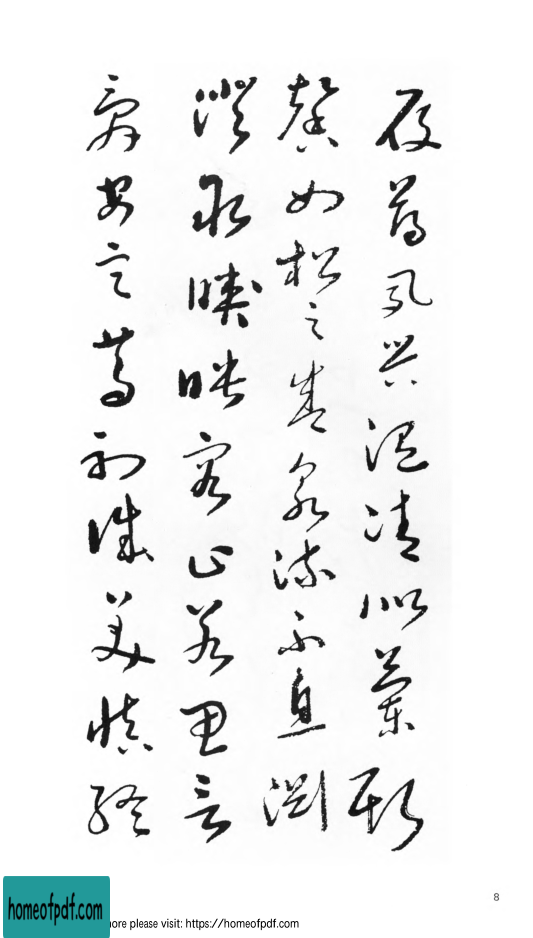 履薄夙興溫清似蘭斯
馨如松之盛泉流不息淵
澄取暎映容止若思言
辭安定篤初誠美慎終
8
homeofpdf.com
more please visit: https://homeofpdf.com